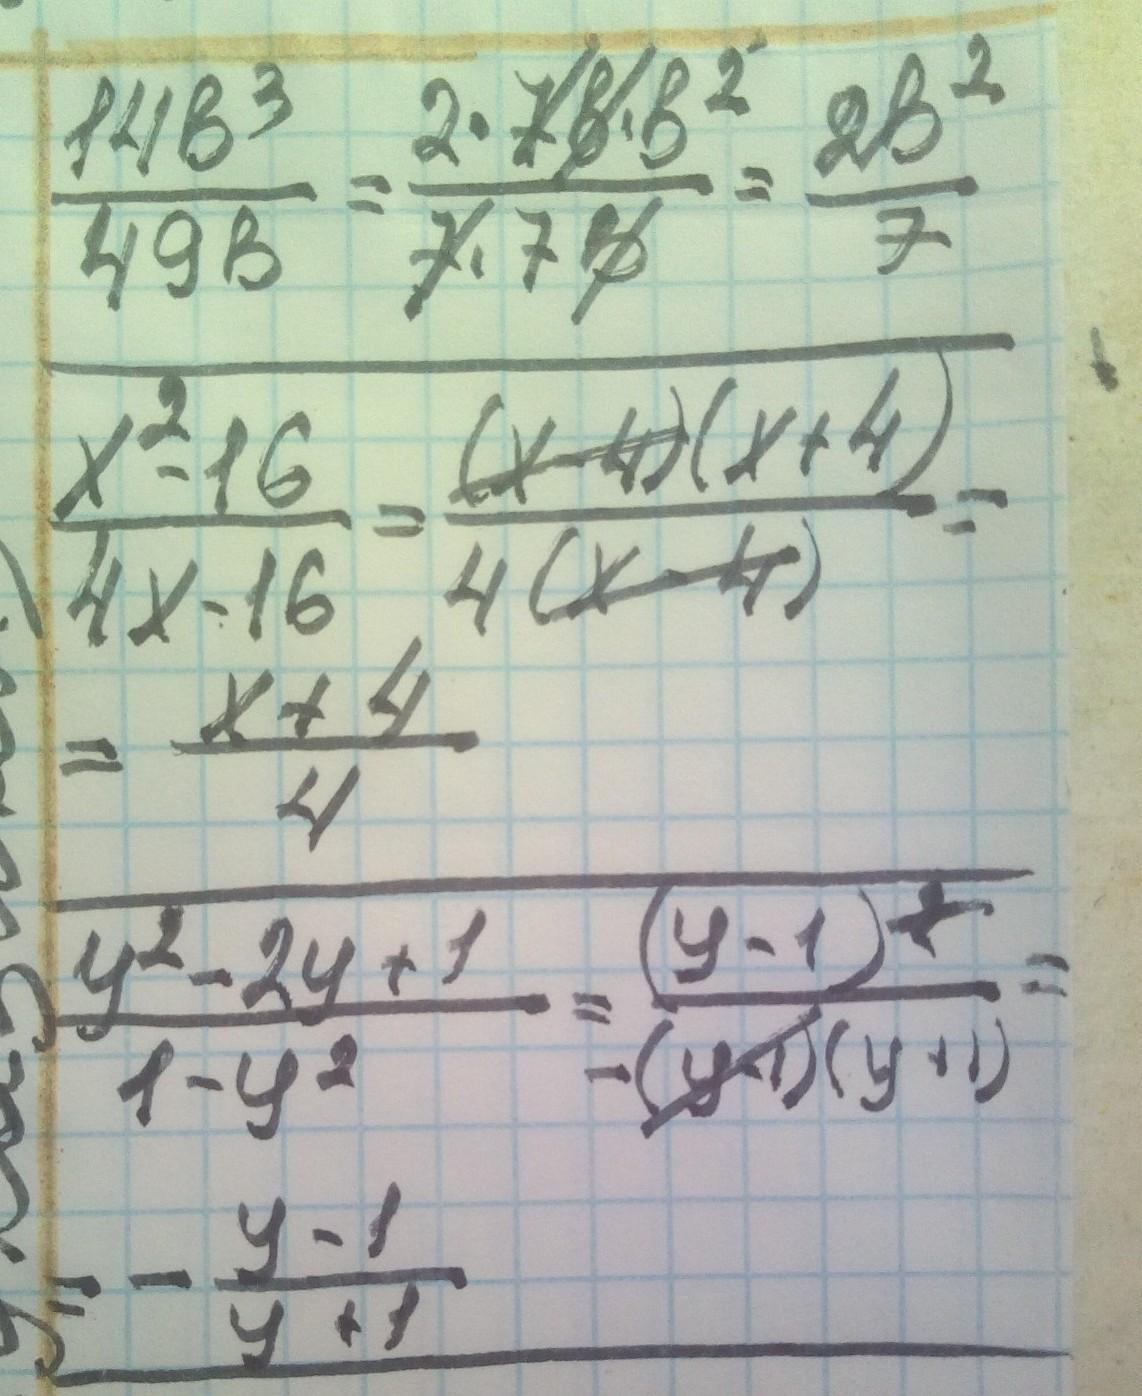 14в³/49в = 2·7в·в²/7·7в = 2в²/7
x²-16/4x-16 = (x-4)(x+4)/4(x-4) =
= x+4/4
y²-2y+1/1-y² = (y-1)²/-(y-1)(y+1) =
= - y-1/y+1